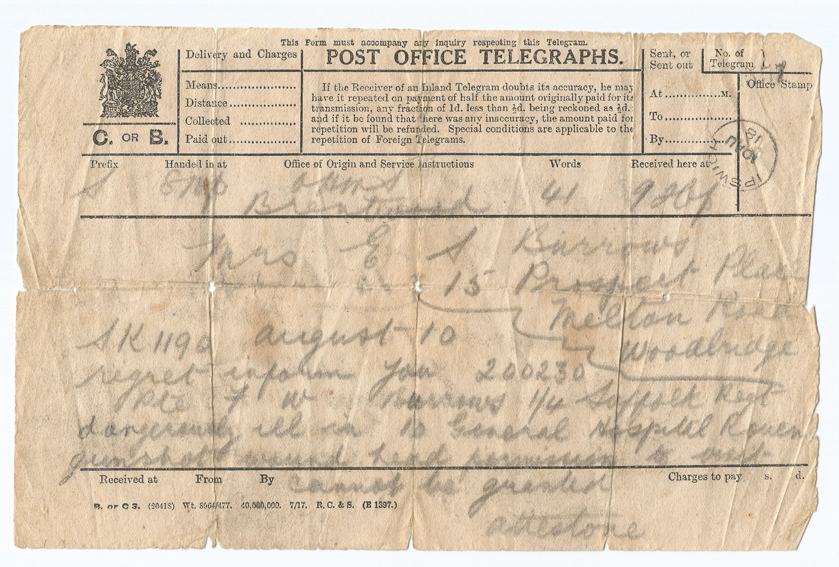 This Form must accompany any inquiry respecting this Telegram.
POST OFFICE TELEGRAPHS.
Delivery and Charges
Means
Distance
Collected
Paid out
If the Receiver of an Inland Telegram doubts its accuracy, he may
have it repeated on payment of half the amount originally paid for its
transmission, any fraction of 1d. less than ½d. being reckoned as ½d.
and if it be found that there was any inaccuracy, the amount paid for
repetition will be refunded. Special conditions are applicable to the
repetition of Foreign Telegrams.
Sent, or
Sent out
At M.
To
By
No. of
Telegram
Office Stamp
IPSWICH
10 AU
18
C. OR B.
Prefix Handed in at Office of Origin and Service Instructions Words Received here at
S OHMS
Brentwood 41
Mrs E S Burrows
15 Prospect Place
Melton Road
Woodbridge
SK1190 August 10
regret inform you 200230
Pte F W Burrows 1/4 Suffolk Regt
dangerously ill in 10 General Hospital Rouen
gunshot wound head permission to visit
cannot be granted
Received at From By Charges to pay s. d.
B. or C 3. (20418) Wt. 8964/477. 40,000,000. 7/17. R. C. & S. (E 1397.)